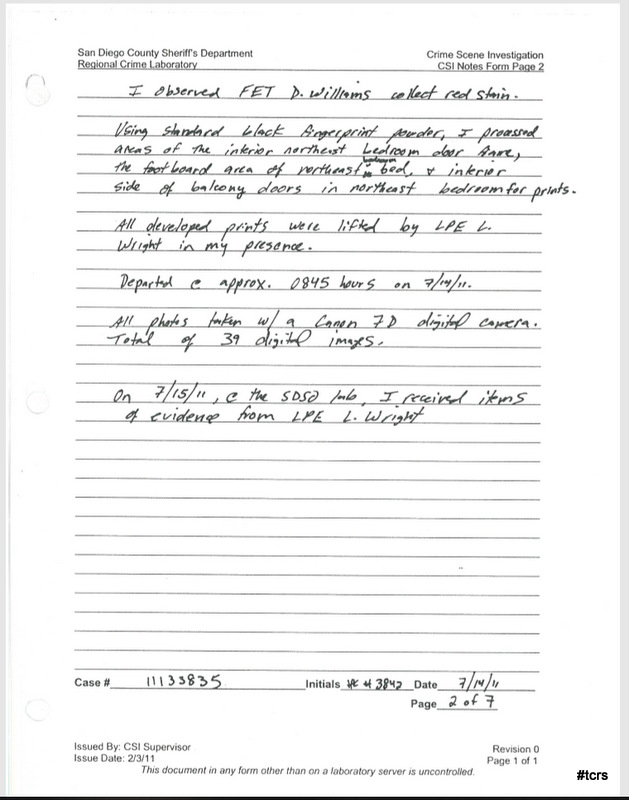 San Diego County Sheriff's Department
Regional Crime Laboratory
Crime Scene Investigation
CSI Notes Form Page 2
I observed FET D. Williams collect red stain.
Using standard black fingerprint powder, I processed
areas of the interior northeast bedroom door frame,
the footboard area of northeast bedroom bed, & interior
side of balcony doors in northeast bedroom for prints.
All developed prints were lifted by LPE L.
Wright in my presence.
Departed @ approx. 0845 hours on 7/14/11.
All photos taken w/ a Canon 7D digital camera.
Total of 39 digital images.
On 7/15/11, @ the SDSO lab, I received items
of evidence from LPE L. Wright
Case # 11133835 Initials # 3842 Date 7/14/11
Page 2 of 7
Issued By: CSI Supervisor
Issue Date: 2/3/11
Revision 0
Page 1 of 1
This document in any form other than on a laboratory server is uncontrolled.
#tcrs